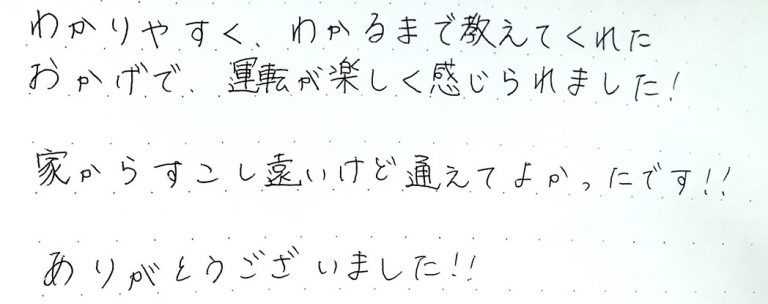 わかりやすく、わかるまで教えてくれた
おかげで、運転が楽しく感じられました!
家からすこし遠いけど通えてよかったです!!
ありがとうございました!!